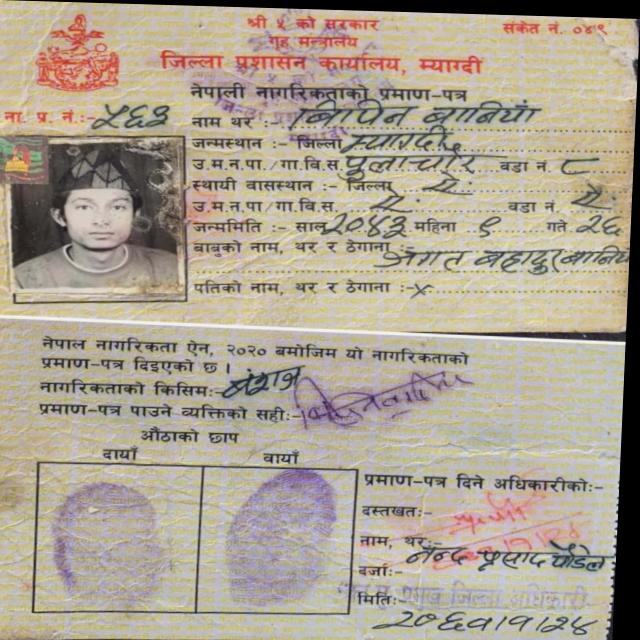 श्री ५ को सरकार
गृह मन्त्रालय
संकेत नं. ०४९
जिल्ला प्रशासन कार्यालय, म्याग्दी
नेपाली नागरिकताको प्रमाण-पत्र
ना. प्र. नं.:- ५६३
नाम थर :- बिपिन बानियाँ
जन्मस्थान :- जिल्ला म्याग्दी
उ.म.न.पा/गा.वि.स. पुलाचौर वडा नं. ८
स्थायी वासस्थान :- जिल्ला ऐ:
उ.म.न.पा/गा.वि.स. ऐ: वडा नं. ऐ:
जन्ममिति :- साल २०४३ महिना ९ गते २६
बाबुको नाम, थर र ठेगाना :-
बहादुर बानियाँ
पतिको नाम, थर र ठेगाना :- x
नेपाल नागरिकता ऐन, २०२० बमोजिम यो नागरिकताको
प्रमाण-पत्र दिइएको छ ।
नागरिकताको किसिम: वंशज
प्रमाण-पत्र पाउने व्यक्तिको सही:-
औंठाको छाप
दायाँ बायाँ
प्रमाण-पत्र दिने अधिकारीको:-
दस्तखत:-
नाम, थर:- नन्द प्रसाद पौडेल
दर्जा:- प्रमुख जिल्ला अधिकारी
मिति:-